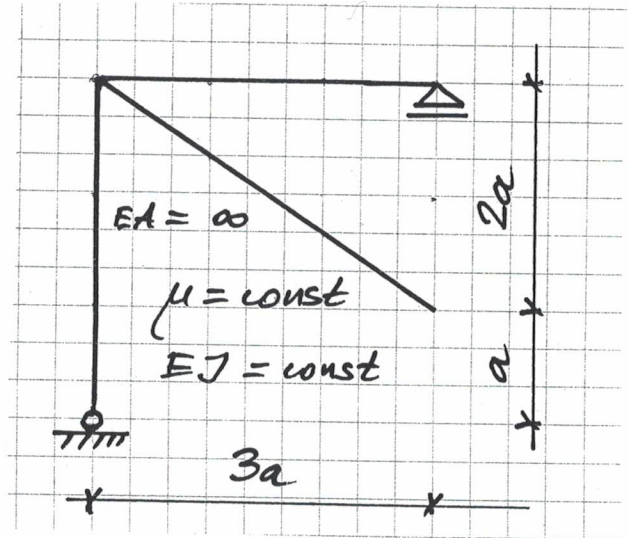 EA = ∞
μ = const
EJ = const
2a
a
3a